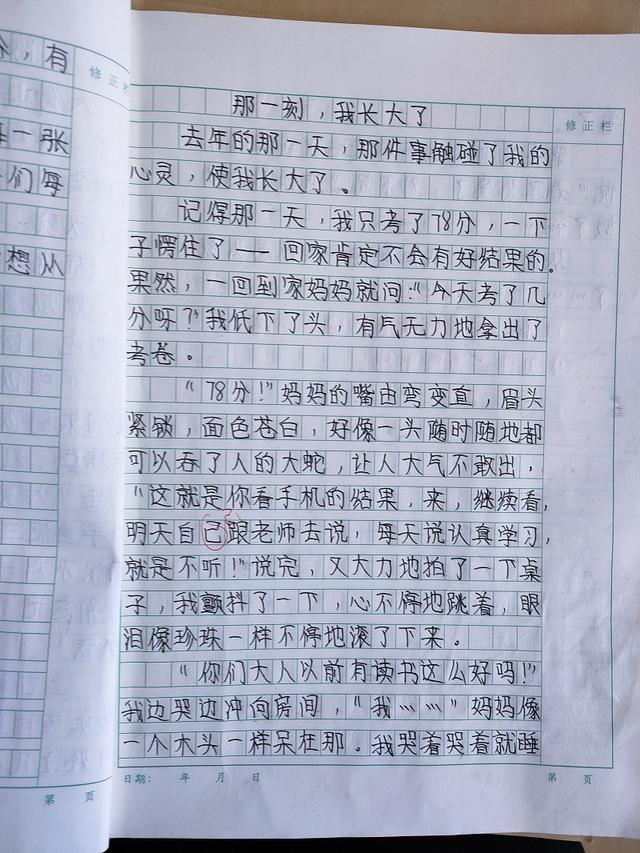 ，有
一张
们每
想从
修正栏
那一刻，我长大了
去年的那一天，那件事触碰了我的
心灵，使我长大了。
记得那一天，我只考了78分，一下
子愣住了——回家肯定不会有好结果的。
果然，一回到家妈妈就问："今天考了几
分呀？"我低下了头，有气无力地拿出了
考卷。
"78分！"妈妈的嘴由弯变直，眉头
紧锁，面色苍白，好像一头随时随地都
可以吞了人的大蛇，让人大气不敢出，
"这就是你看手机的结果，来，继续看，
明天自己跟老师去说，每天说认真学习，
就是不听！"说完，又大力地拍了一下桌
子，我颤抖了一下，心不停地跳着，眼
泪像珍珠一样不停地滚了下来。
"你们大人以前有读书这么好吗！"
我边哭边冲向房间，"我……"妈妈像
一个木头一样呆在那。我哭着哭着就睡
日期： 年 月 日
第 页
修正栏
第 页